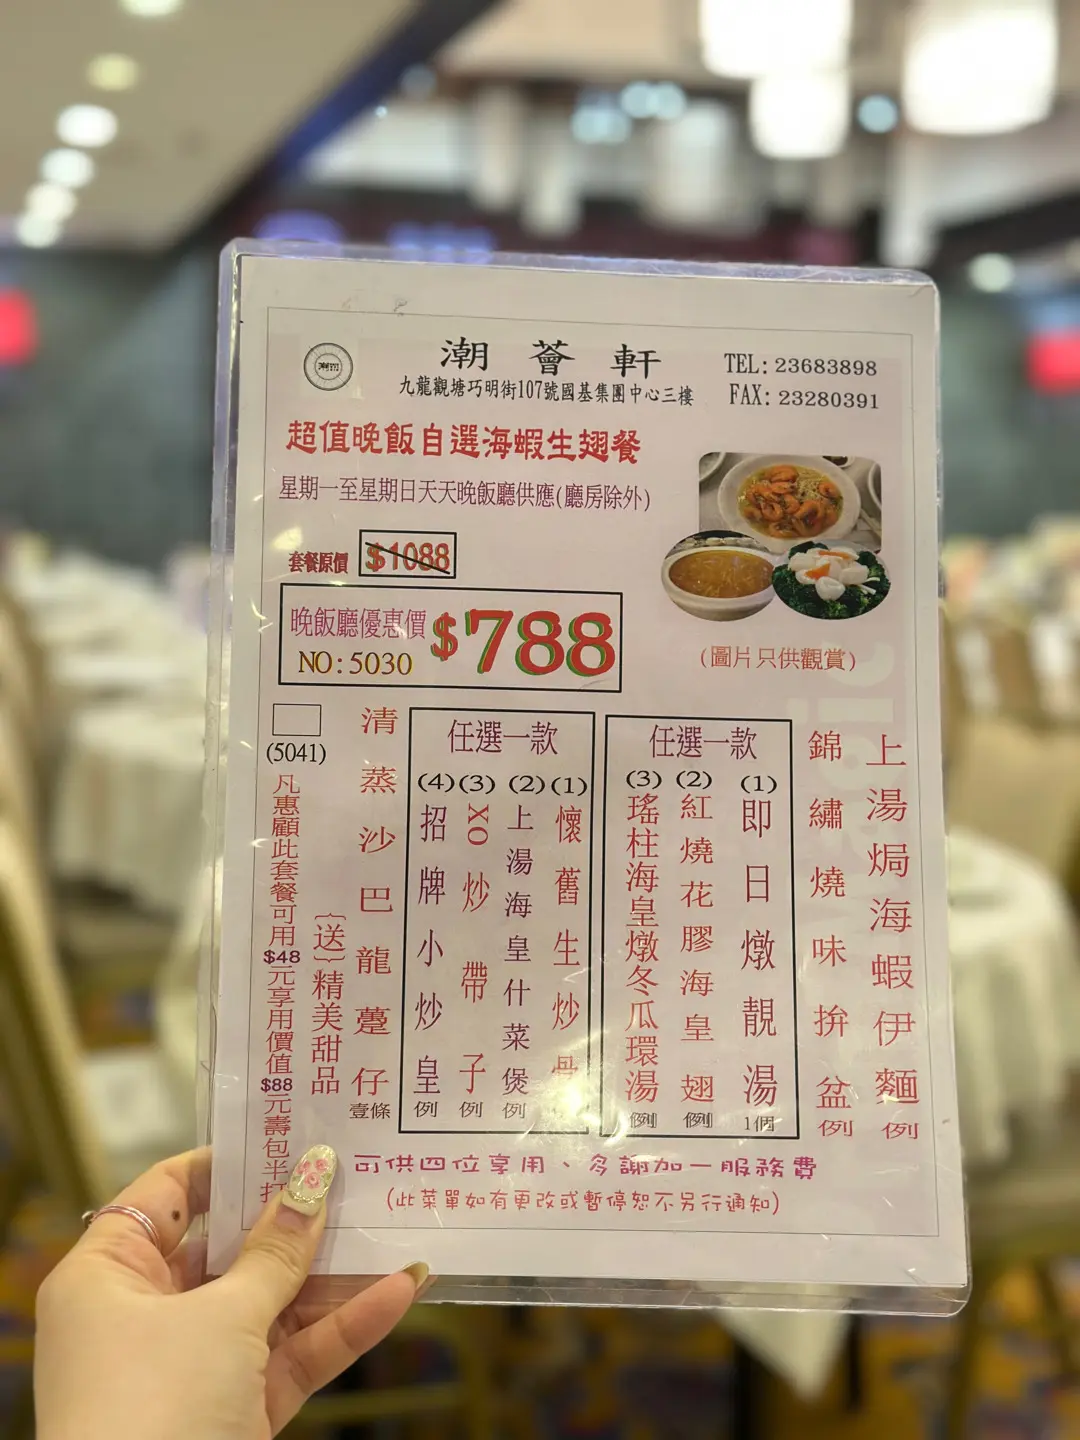 潮薈軒
九龍觀塘巧明街107號國基集團中心三樓
TEL: 23683898
FAX: 23280391
超值晚飯自選海蝦生翅餐
星期一至星期日天天晚飯廳供應(廳房除外)
套餐原價 $1088
晚飯廳優惠價 $788
NO:5030
(圖片只供觀賞)
上湯焗海蝦伊麵 例
錦繡燒味拚盆 例
任選一款
(1) 即日燉靚湯 1個
(2) 紅燒花膠海皇翅 例
(3) 瑤柱海皇燉冬瓜環湯 例
任選一款
(1) 懷舊生炒骨
(2) 上湯海皇什菜煲 例
(3) XO炒帶子 例
(4) 招牌小炒皇 例
清蒸沙巴龍躉仔 壹條
{送}精美甜品
(5041)
凡惠顧此套餐可用$48元享用價值$88元壽包半打
可供四位享用、多謝加一服務費
(此菜單如有更改或暫停恕不另行通知)